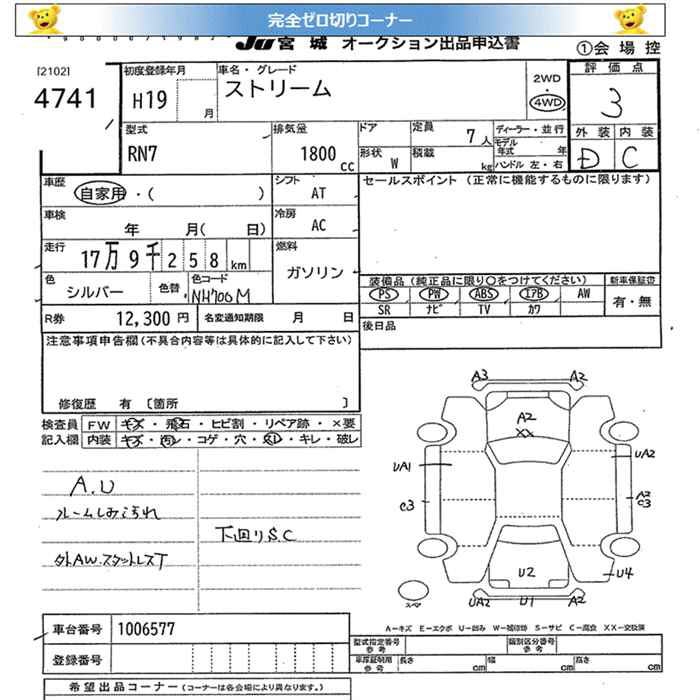 完全ゼロ切りコーナー
JU宮城 オークション出品申込書
①会場控
[2102]
4741
初度登録年月
H19
月
車名・グレード
ストリーム
2WD
・
4WD
評価点
3
型式
RN7
排気量
1800 cc
ドア
形状 W
定員 7人
積載 kg
ディーラー・並行
モデル年式 年
ハンドル 左・右
外装 内装
D C
車歴
自家用・( )
シフト
AT
セールスポイント (正常に機能するものに限ります)
車検
年 月( 日)
冷房
AC
走行
17万9千258km
燃料
ガソリン
色
シルバー
色替
色コード
NH700M
装備品 (純正品に限り○をつけてください)
新車保証書
PS PW ABS エアB AW
有・無
SR ナビ TV カワ
R券 12,300円
名変通知期限 月 日
後日品
注意事項申告欄(不具合内容等は具体的に記入して下さい)
修復歴 有 〔箇所 〕
検査員記入欄
FW キズ・飛石・ヒビ割・リペア跡・×要
内装 キズ・汚レ・コゲ・穴・スレ・キレ・破レ
A.U
ルームしみこられ
下回りS.C
外AW.スタットレスT
A3 A2
A2
XX
UA1 UA2
C3 A2
C3
U2 U4
UA2 U1 A2
スペア
A−キズ E−エクボ U−凹み W−補修跡 S−サビ C−腐食 XX−交換済
車台番号 1006577
登録番号
型式指定番号
参考
類別区分番号
参考
車庫証明用
参考
長さ cm
幅 cm
高さ cm
希望出品コーナー (コーナーは各会場により異なります。)